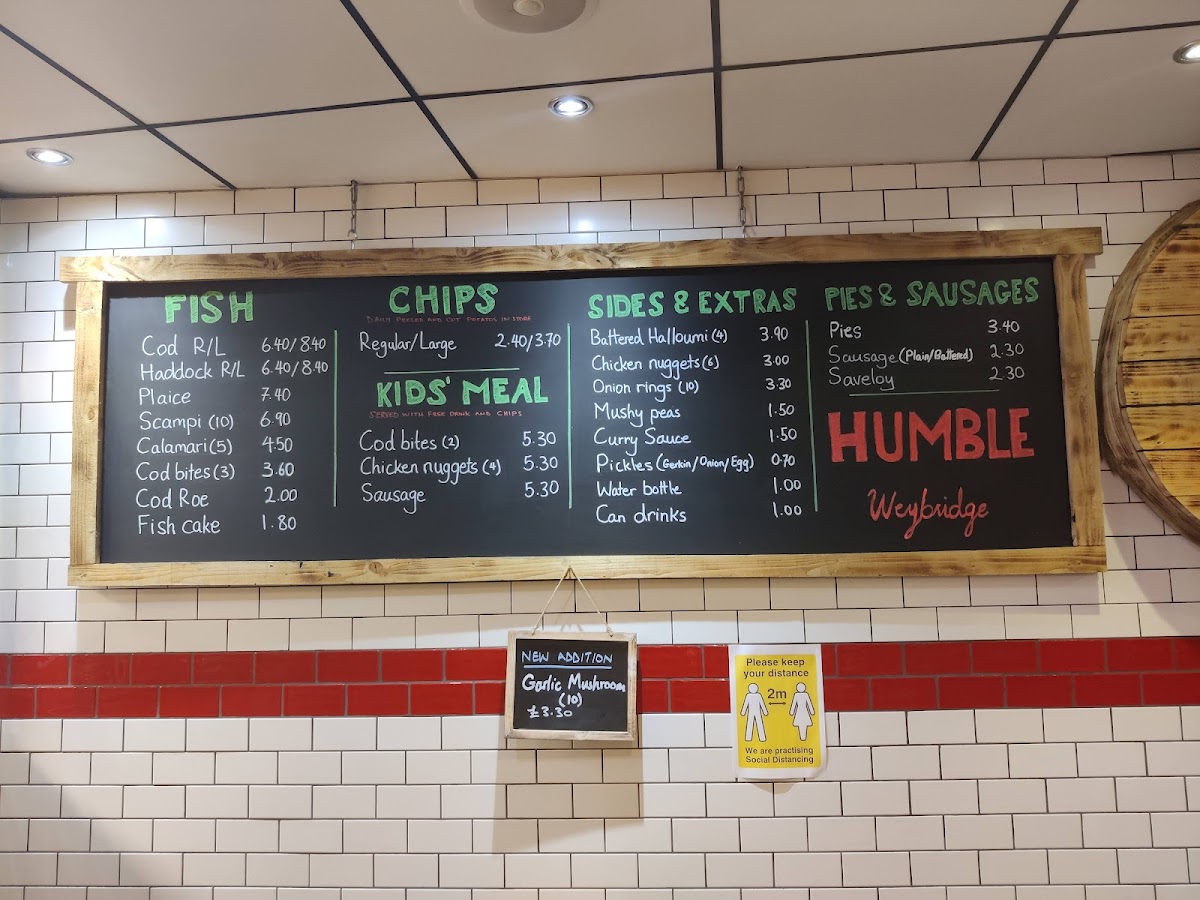 FISH
Cod R/L 6.40/8.40
Haddock R/L 6.40/8.40
Plaice 7.40
Scampi (10) 6.90
Calamari (5) 4.50
Cod bites (3) 3.60
Cod Roe 2.00
Fish cake 1.80
CHIPS
DAILY PEELED AND CUT POTATOS IN STORE
Regular/Large 2.40/3.70
KIDS' MEAL
SERVED WITH FREE DRINK AND CHIPS
Cod bites (2) 5.30
Chicken nuggets (4) 5.30
Sausage 5.30
SIDES & EXTRAS
Battered Halloumi (4) 3.90
Chicken nuggets (6) 3.00
Onion rings (10) 3.30
Mushy peas 1.50
Curry Sauce 1.50
Pickles (Gerkin/Onion/Egg) 0.70
Water bottle 1.00
Can drinks 1.00
PIES & SAUSAGES
Pies 3.40
Sausage (Plain/Battered) 2.30
Saveloy 2.30
HUMBLE
Weybridge
NEW ADDITION
Garlic Mushroom
(10)
£3.30
Please keep
your distance
2m
We are practising
Social Distancing